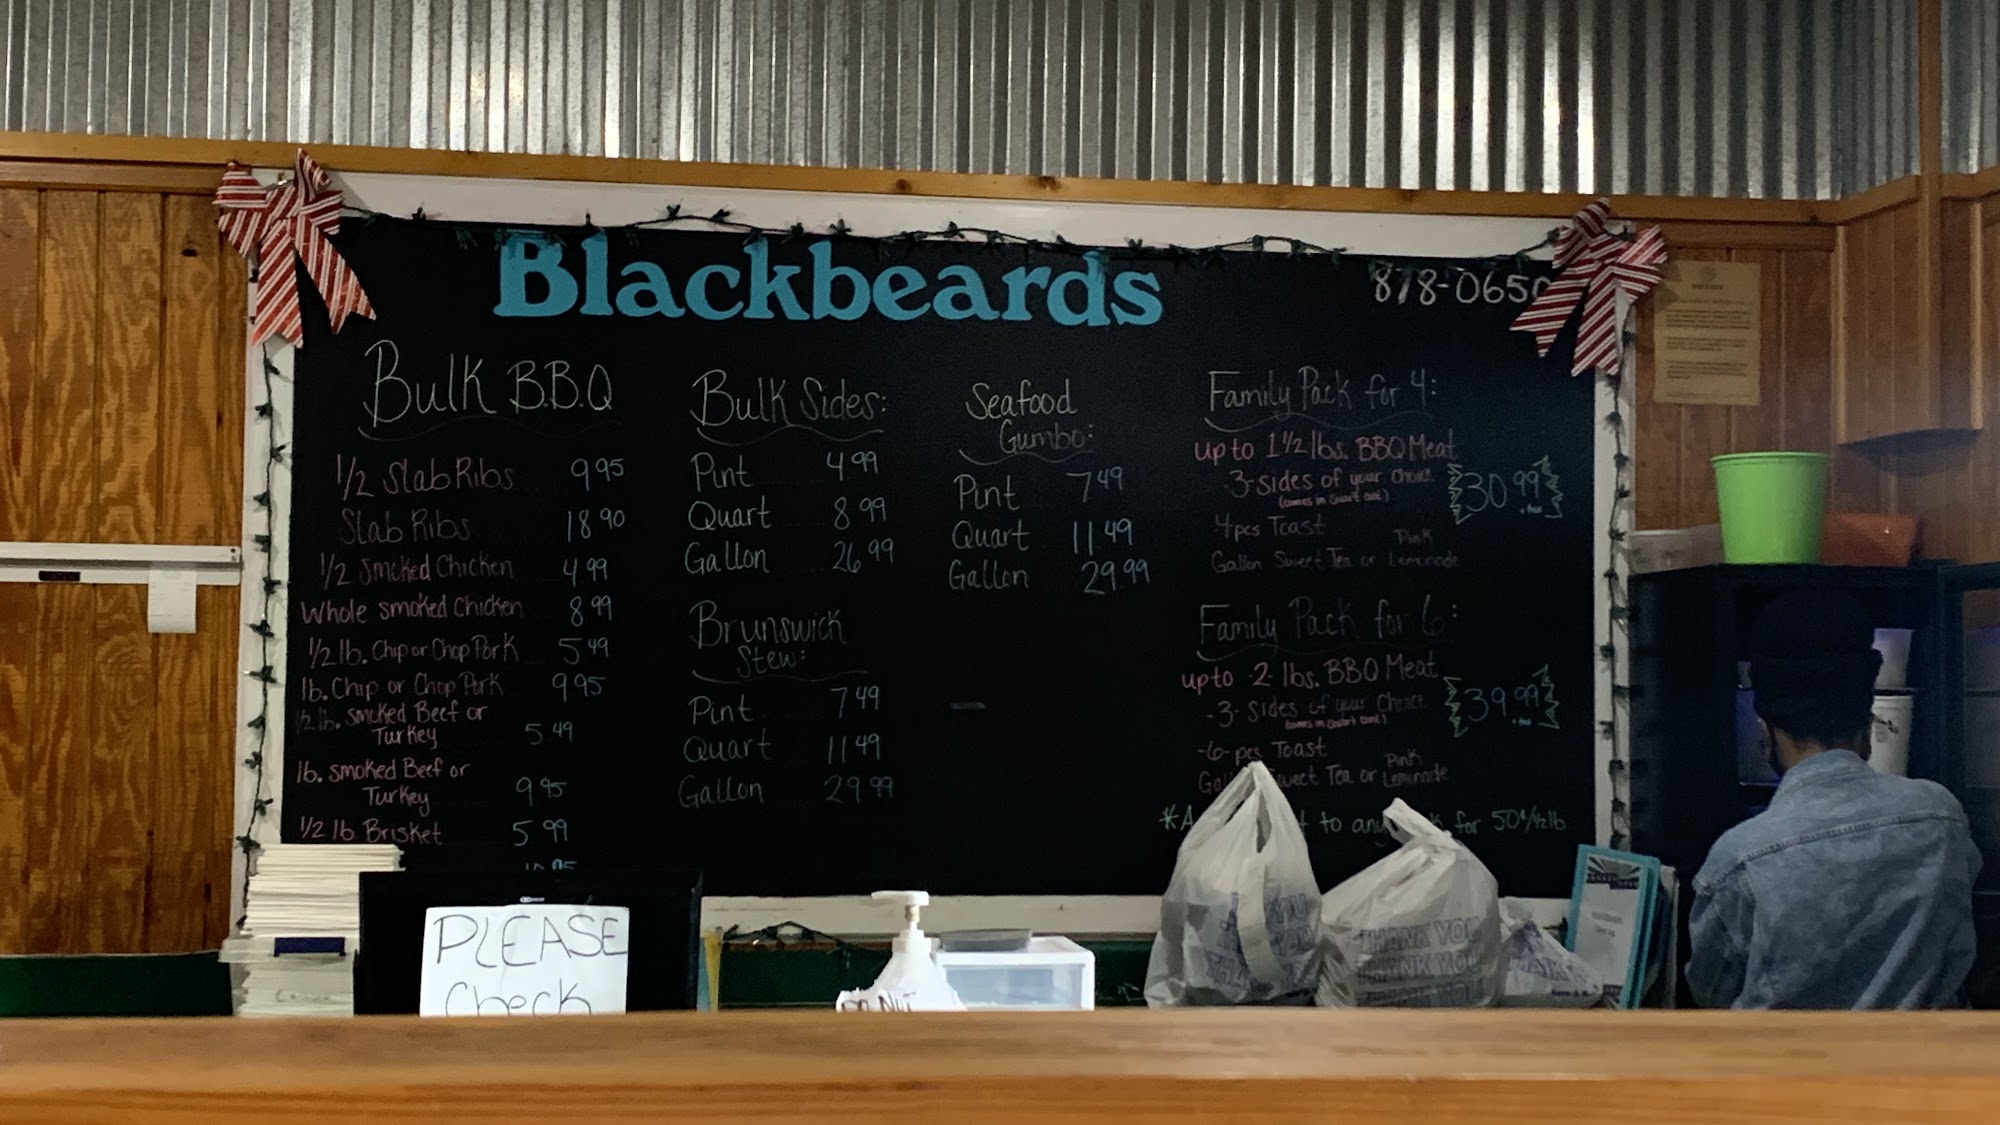 Blackbeards
878-0650
Bulk B.B.Q
1/2 Slab Ribs 9.95
Slab Ribs 18.90
1/2 Smoked Chicken 4.99
Whole smoked Chicken 8.99
1/2 lb. Chip or Chop Pork 5.49
lb. Chip or Chop Pork 9.95
1/2 lb. smoked Beef or
Turkey 5.49
lb. smoked Beef or
Turkey 9.95
1/2 lb. Brisket 5.99
Bulk Sides:
Pint 4.99
Quart 8.99
Gallon 26.99
Brunswick
Stew:
Pint 7.49
Quart 11.49
Gallon 29.99
Seafood
Gumbo:
Pint 7.49
Quart 11.49
Gallon 29.99
Family Pack for 4:
up to 1 1/2 lbs. BBQ Meat
-3- sides of your Choice
30.99
+tax
4 pcs Toast
Pink
Gallon Sweet Tea or Lemonade
Family Pack for 6:
up to -2- lbs. BBQ Meat
-3- Sides of your Choice
39.99
+tax
-6- pcs Toast
Pink
Sweet Tea or Lemonade
to any for 50¢/½lb
PLEASE
Check
DO NOT
THANK YOU
THANK YOU
THANK YOU